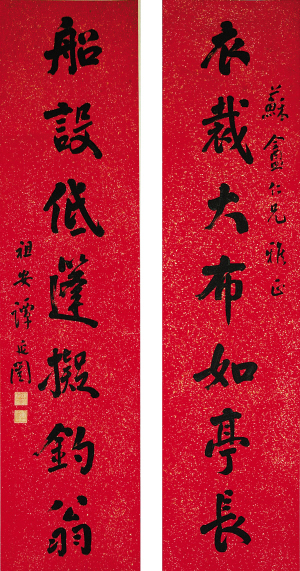 蘇盦仁兄雅正
衣裁大布如亭長
船設低篷擬釣翁
祖安譚延闓